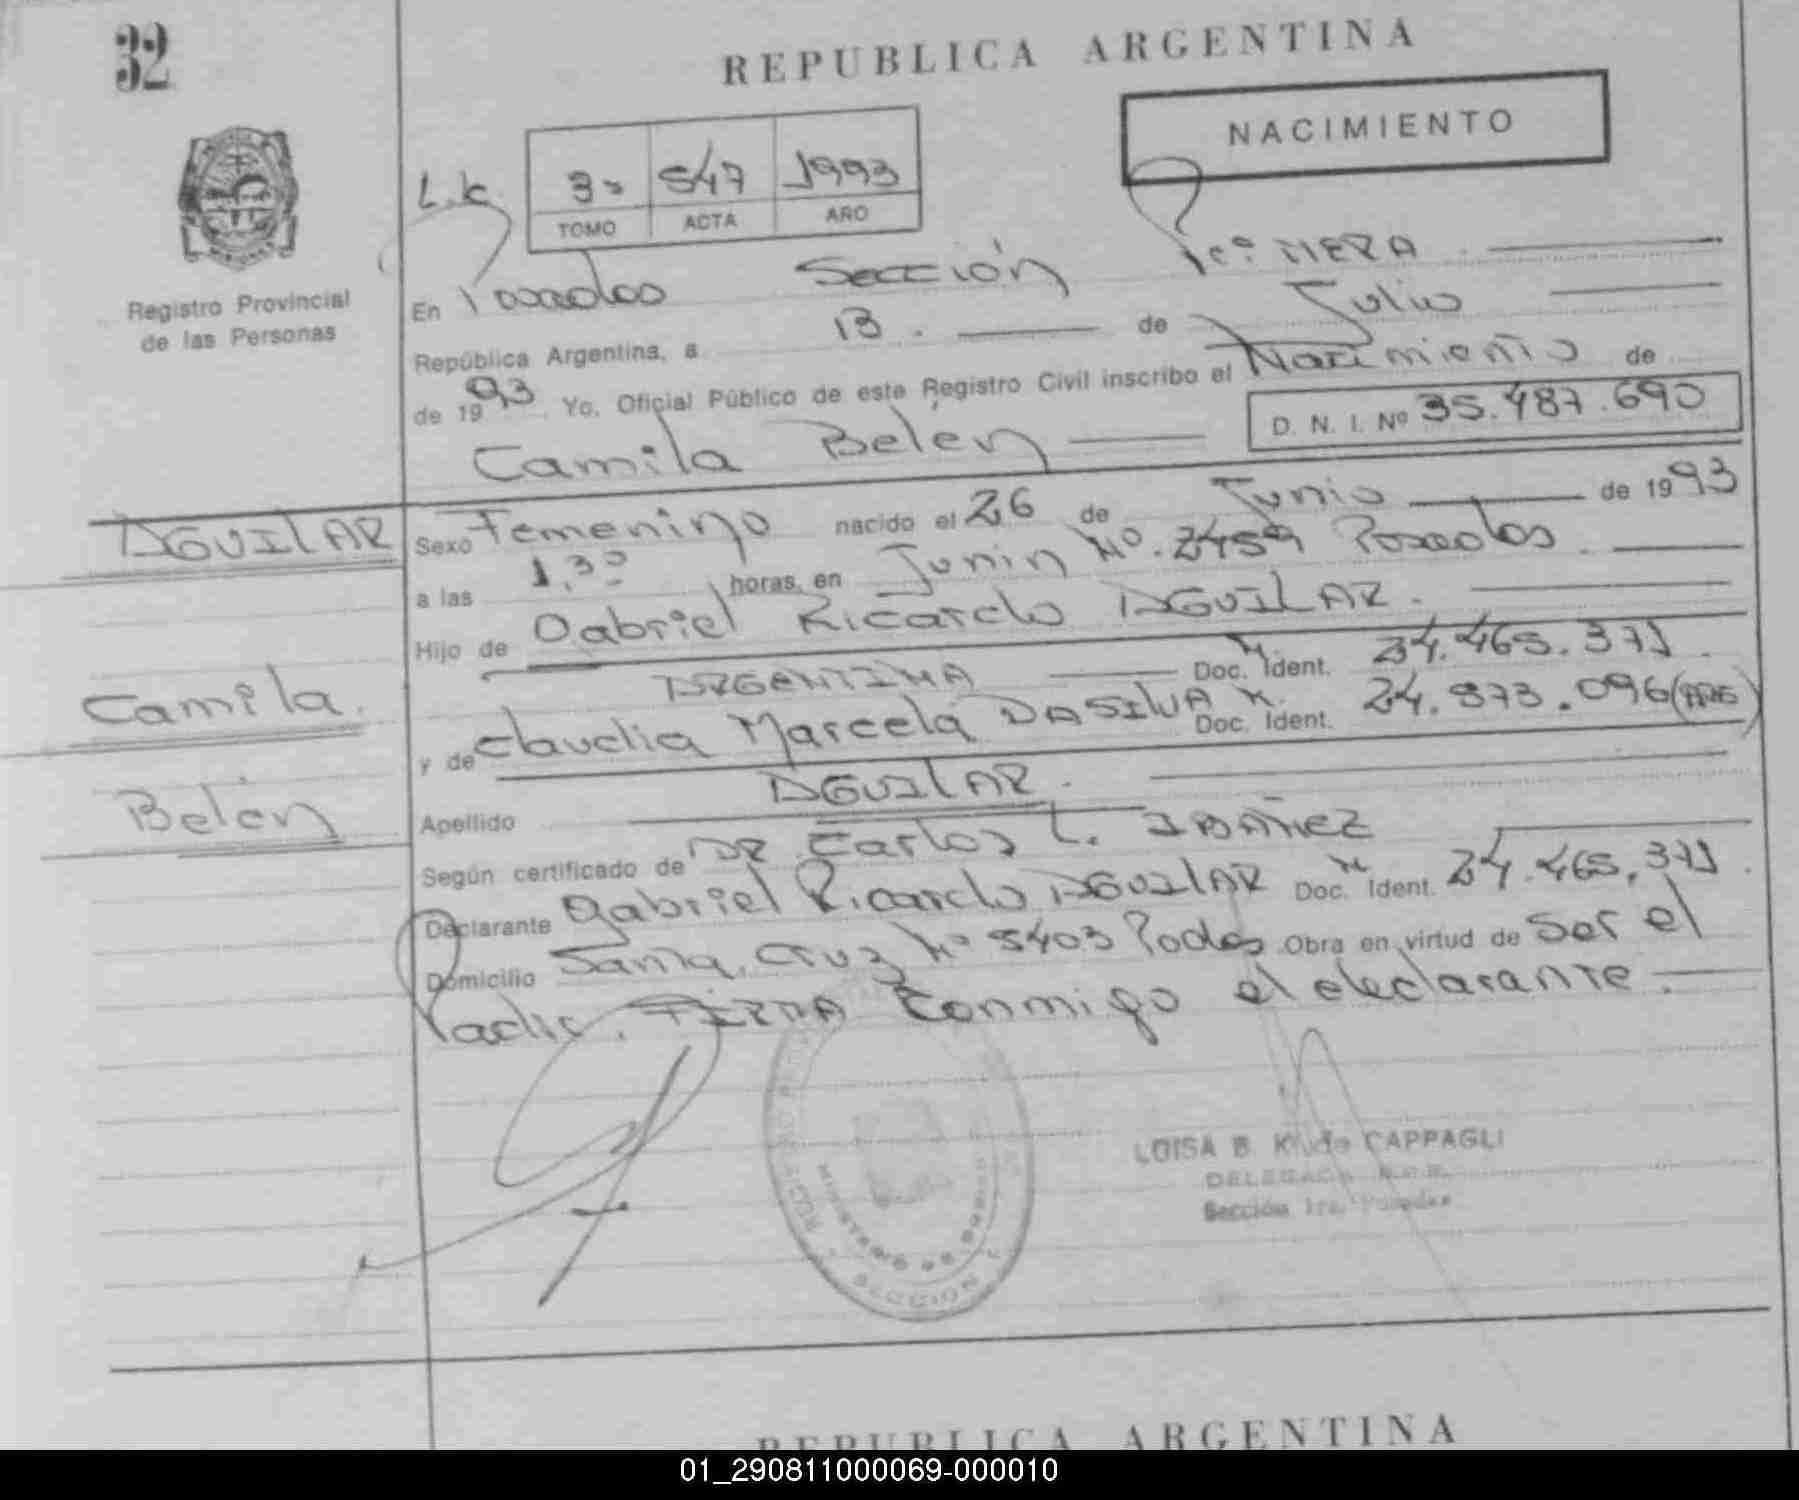 32
REPUBLICA ARGENTINA
NACIMIENTO
L.K.
3º 547 1993
TOMO ACTA AÑO
Registro Provincial
de las Personas
En Posadas Sección Primera
República Argentina, a 13 . de Julio
de 1993 Yo, Oficial Público de este Registro Civil inscribo el Nacimiento de
D. N. I. Nº 35.487.690
Camila Belén
AGUILAR
Camila
Belén
Sexo Femenino nacido el 26 de Junio de 1993
a las 1,30 horas, en Junin Nº. 2459 Posadas.
Hijo de Gabriel Ricardo AGUILAR.
ARGENTINA Doc. Ident. 24.465.371.
y de Claudia Marcela DASILVA Doc. Ident. 24.573.096 (ARG)
Apellido AGUILAR.
Según certificado de DR Carlos L. IBAÑEZ
Declarante Gabriel Ricardo AGUILAR Doc. Ident. 24.465.371.
Domicilio Santa Cruz Nº 5403 Podas Obra en virtud de Ser el
Padre. FIRMA Conmigo el declarante.
LUISA B. K. de CAPPAGLI
DELEGADA
Sección 1ra. Posadas
MINISTERIO DE GOBIERNO
SECCION
REPUBLICA ARGENTINA
01_290811000069-000010